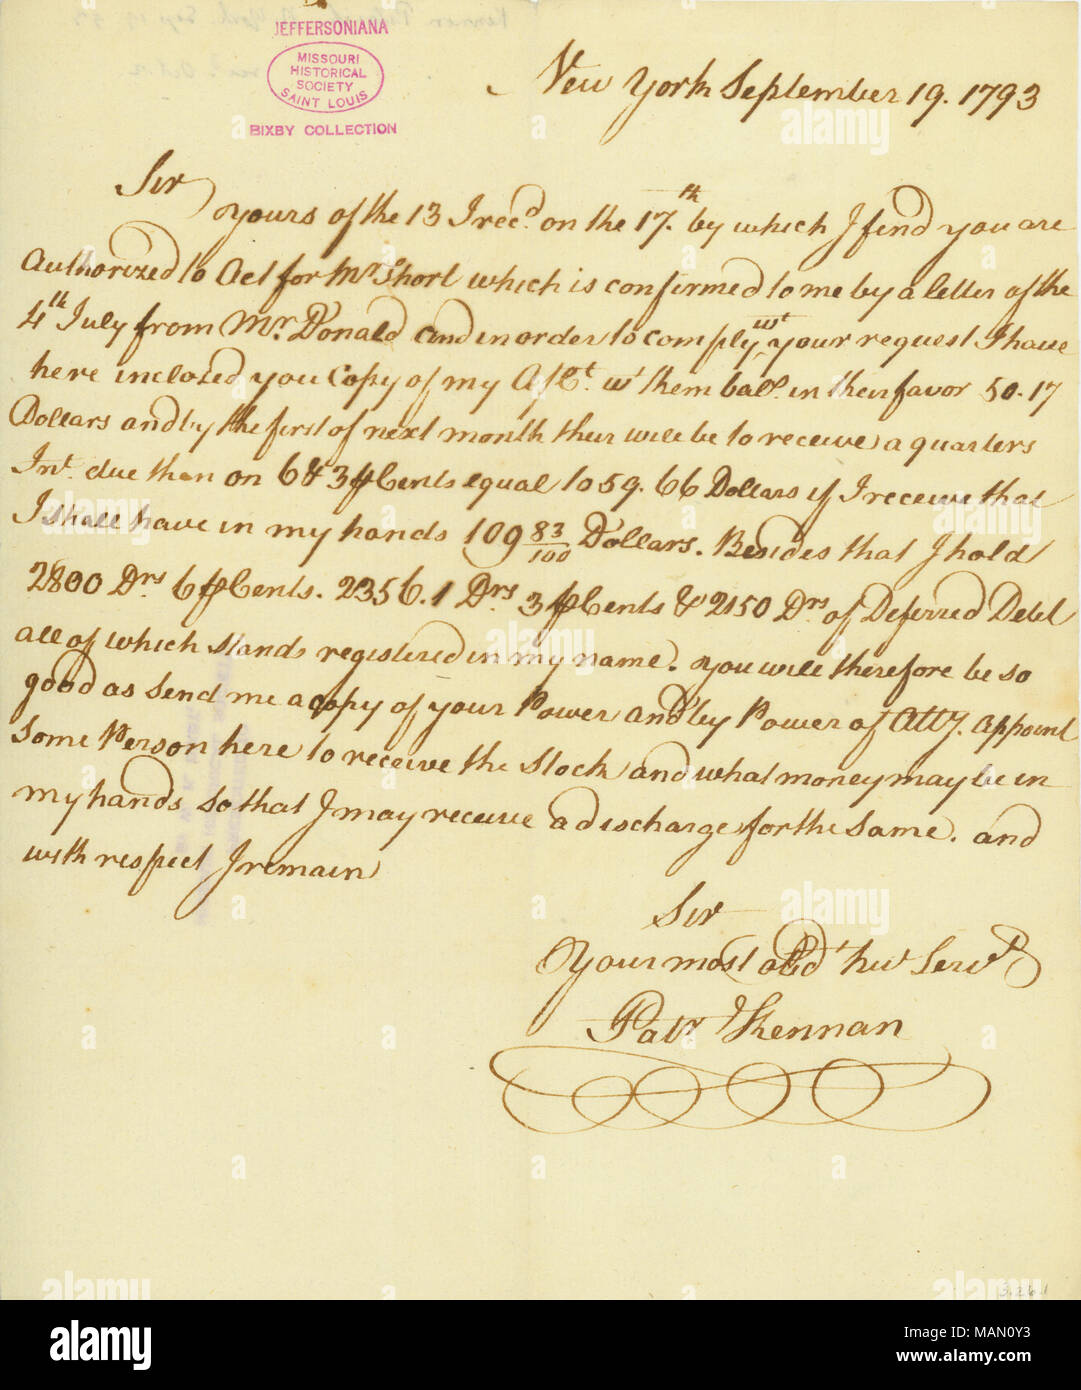 JEFFERSONIANA
MISSOURI
HISTORICAL
SOCIETY
SAINT LOUIS
BIXBY COLLECTION
New York September 19. 1793
Sir
Yours of the 13 I recd. on the 17.th by which I find you are
Authorized to Act for Mr. Short which is confirmed to me by a letter of the
4th July from Mr. Donald and in order to comply wt. your request I have
here inclozed you Copy of my Act. wt them ball. in their favor 50.17
Dollars and by the first of next month their will be to receive a quarters
Int. due then on 6 & 3 ⅌ Cents equal to 59.66 Dollars if I receive that
I shall have in my hands 109 83/100 Dollars. Besides that I hold
2800 Drs. 6 ⅌ Cents. 2356.1 Drs. 3 ⅌ Cents & 2150 Drs. of Deferred Debt
all of which stands registered in my name. You will therefore be so
good as send me a copy of your Power and by Power of Atty. appoint
some Person here to receive the Stock and what money may be in
my hands so that I may receive a discharge for the same. and
with respect I remain
Sir
Your most obd. hu. Servt.
Patr Kennan
alamy
Image ID: MAN0Y3
www.alamy.com